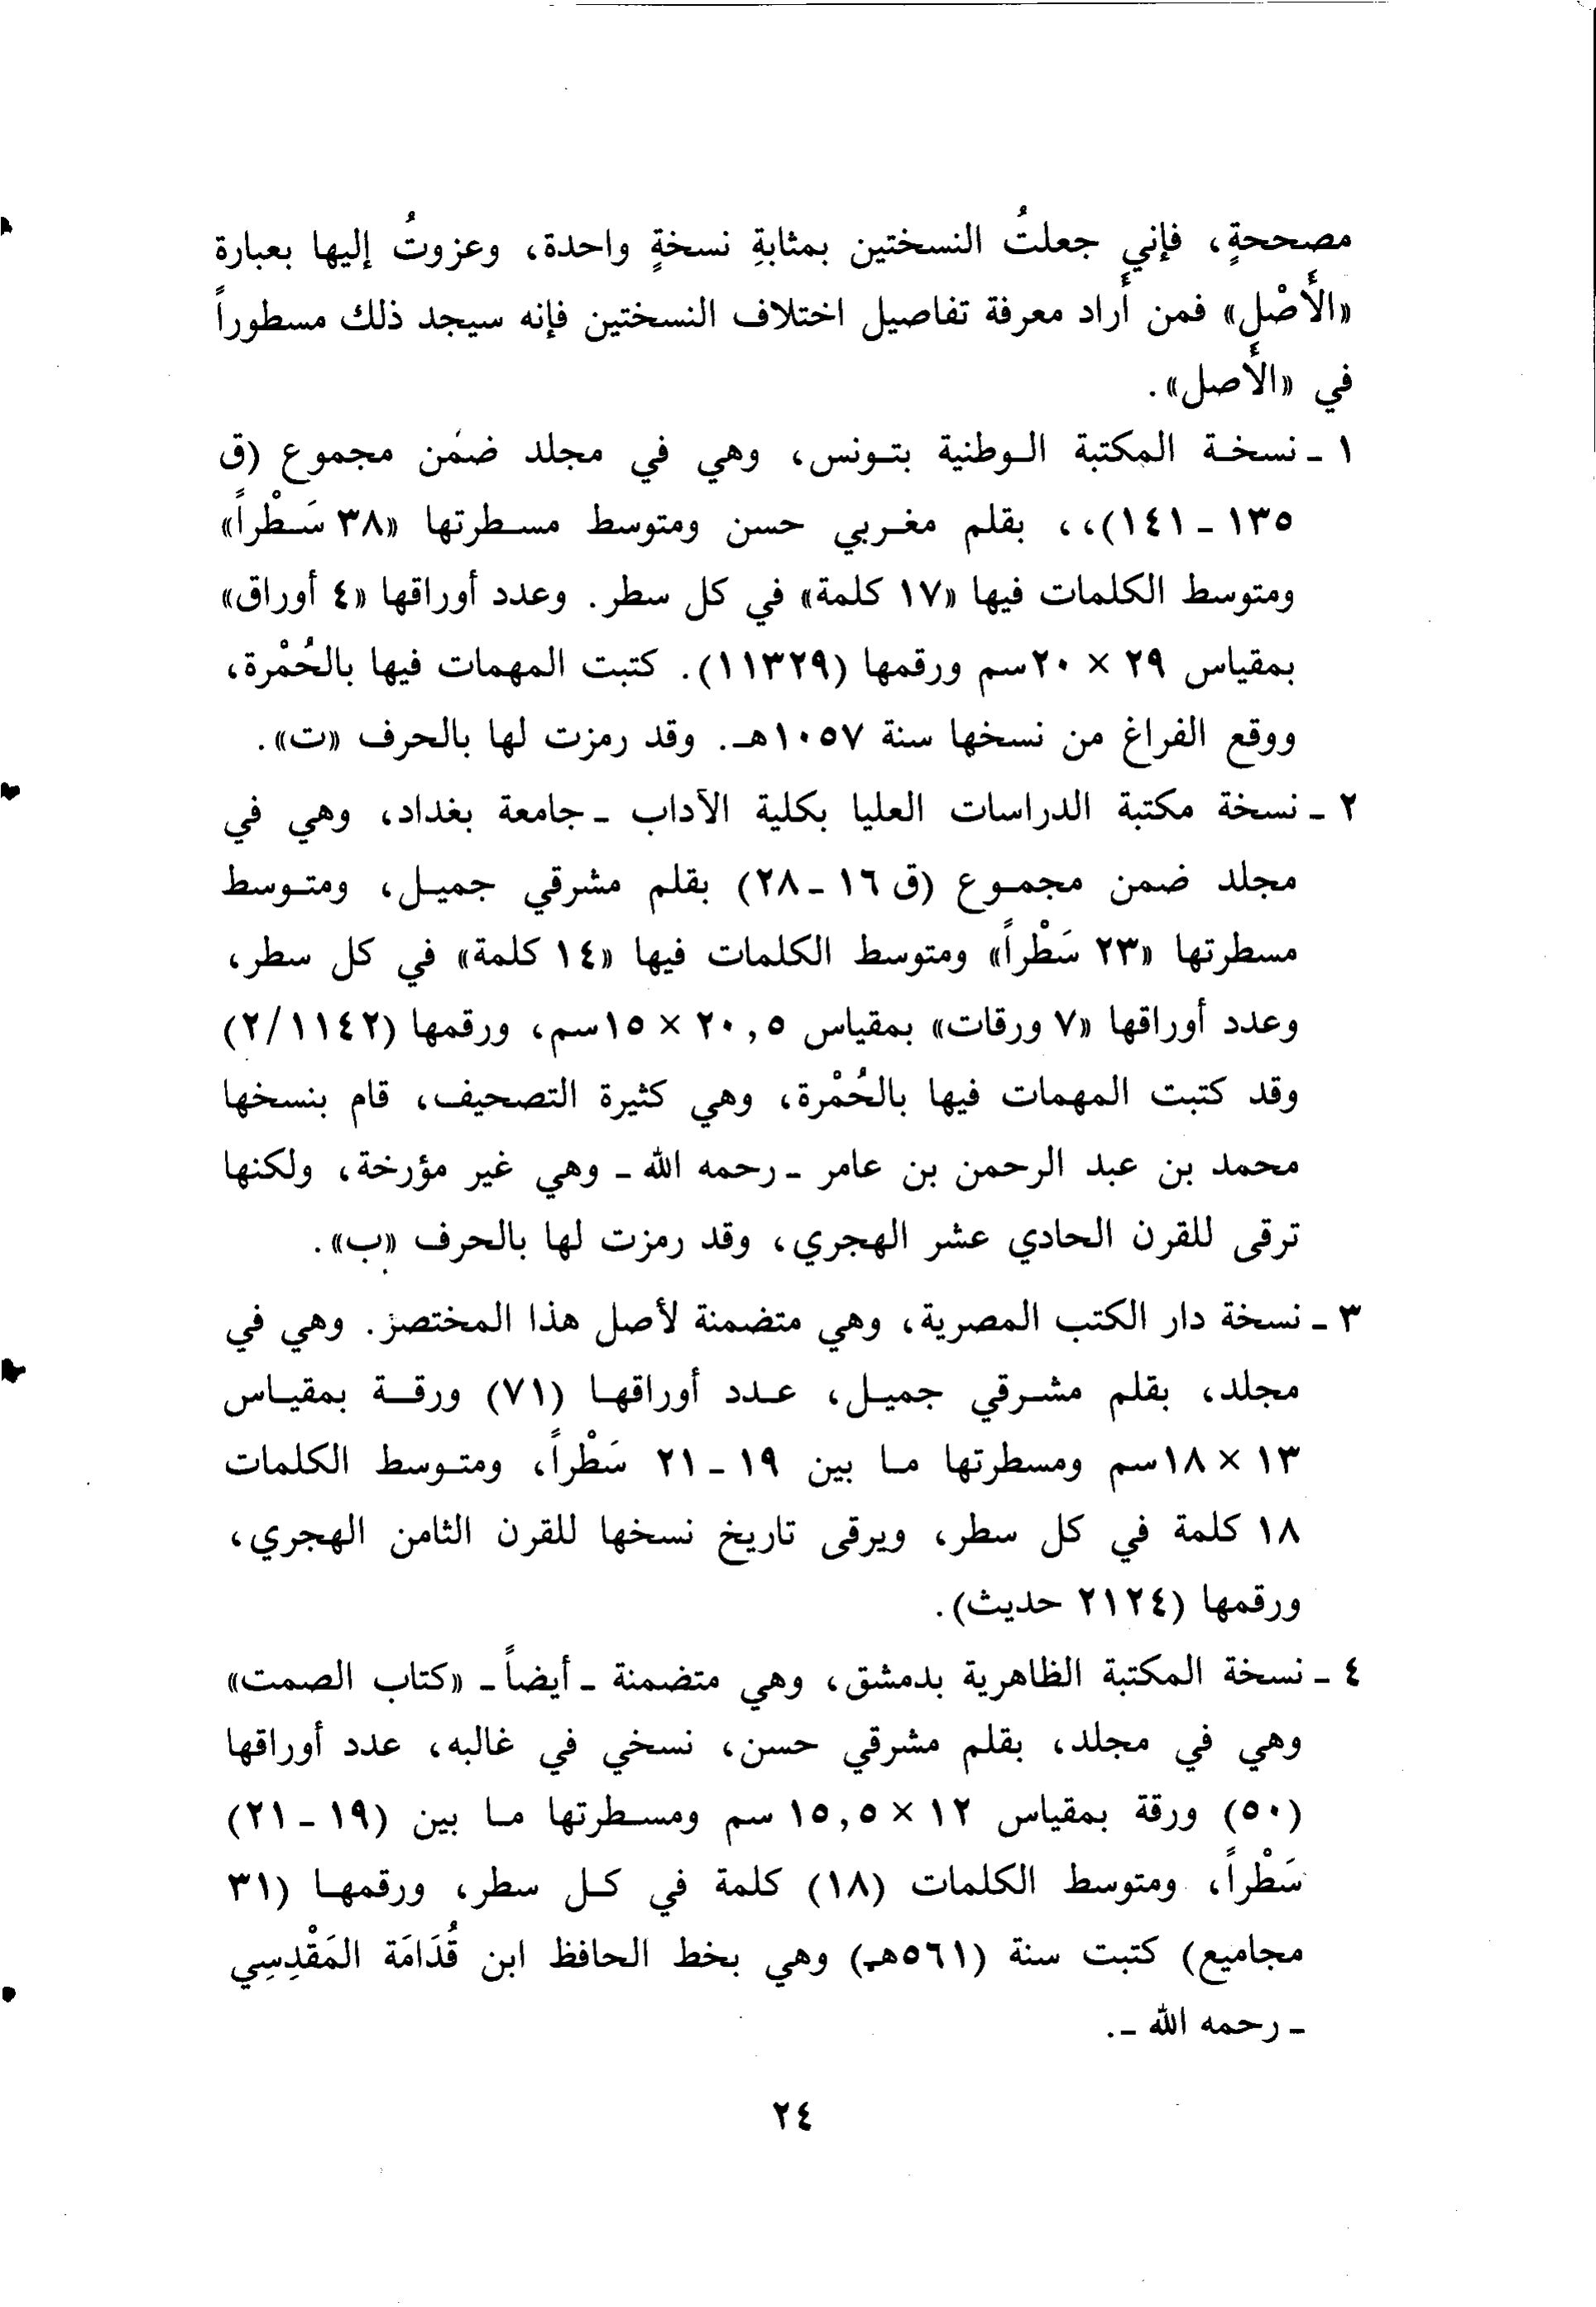 مصححةٍ، فإني جعلتُ النسختين بمثابةِ نسخةٍ واحدة، وعزوتُ إليها بعبارة
«الأَصْلِ» فمن أراد معرفة تفاصيل اختلاف النسختين فإنه سيجد ذلك مسطوراً
في «الأصل».
١ - نسخة المكتبة الوطنية بتونس، وهي في مجلد ضمن مجموع (ق
١٣٥ - ١٤١)،، بقلم مغربي حسن ومتوسط مسطرتها «٣٨ سَطْراً»
ومتوسط الكلمات فيها «١٧ كلمة» في كل سطر. وعدد أوراقها «٤ أوراق»
بمقياس ٢٩ × ٢٠سم ورقمها (١١٣٢٩). كتبت المهمات فيها بالحُمْرة،
ووقع الفراغ من نسخها سنة ١٠٥٧هـ. وقد رمزت لها بالحرف «ت».
٢ - نسخة مكتبة الدراسات العليا بكلية الآداب - جامعة بغداد، وهي في
مجلد ضمن مجموع (ق ١٦ - ٢٨) بقلم مشرقي جميل، ومتوسط
مسطرتها «٢٣ سَطْراً» ومتوسط الكلمات فيها «١٤ كلمة» في كل سطر،
وعدد أوراقها «٧ ورقات» بمقياس ٢٠,٥ × ١٥سم، ورقمها (٢/١١٤٢)
وقد كتبت المهمات فيها بالحُمْرة، وهي كثيرة التصحيف، قام بنسخها
محمد بن عبد الرحمن بن عامر - رحمه الله - وهي غير مؤرخة، ولكنها
ترقى للقرن الحادي عشر الهجري، وقد رمزت لها بالحرف «ب».
٣ - نسخة دار الكتب المصرية، وهي متضمنة لأصل هذا المختصر. وهي في
مجلد، بقلم مشرقي جميل، عدد أوراقها (٧١) ورقة بمقياس
١٣ × ١٨سم ومسطرتها ما بين ١٩ - ٢١ سَطْراً، ومتوسط الكلمات
١٨ كلمة في كل سطر، ويرقى تاريخ نسخها للقرن الثامن الهجري،
ورقمها (٢١٢٤ حديث).
٤ - نسخة المكتبة الظاهرية بدمشق، وهي متضمنة - أيضاً - «كتاب الصمت»
وهي في مجلد، بقلم مشرقي حسن، نسخي في غالبه، عدد أوراقها
(٥٠) ورقة بمقياس ١٢ × ١٥,٥ سم ومسطرتها ما بين (١٩ - ٢١)
سَطْراً، ومتوسط الكلمات (١٨) كلمة في كل سطر، ورقمها (٣١
مجاميع) كتبت سنة (٥٦١هـ) وهي بخط الحافظ ابن قُدَامَة المَقْدِسِي
- رحمه الله -.
٢٤